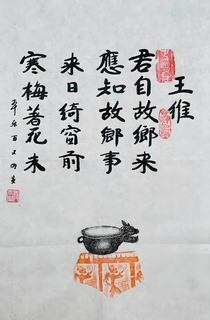 王維
君自故鄉來
應知故鄉事
來日綺窗前
寒梅著花未